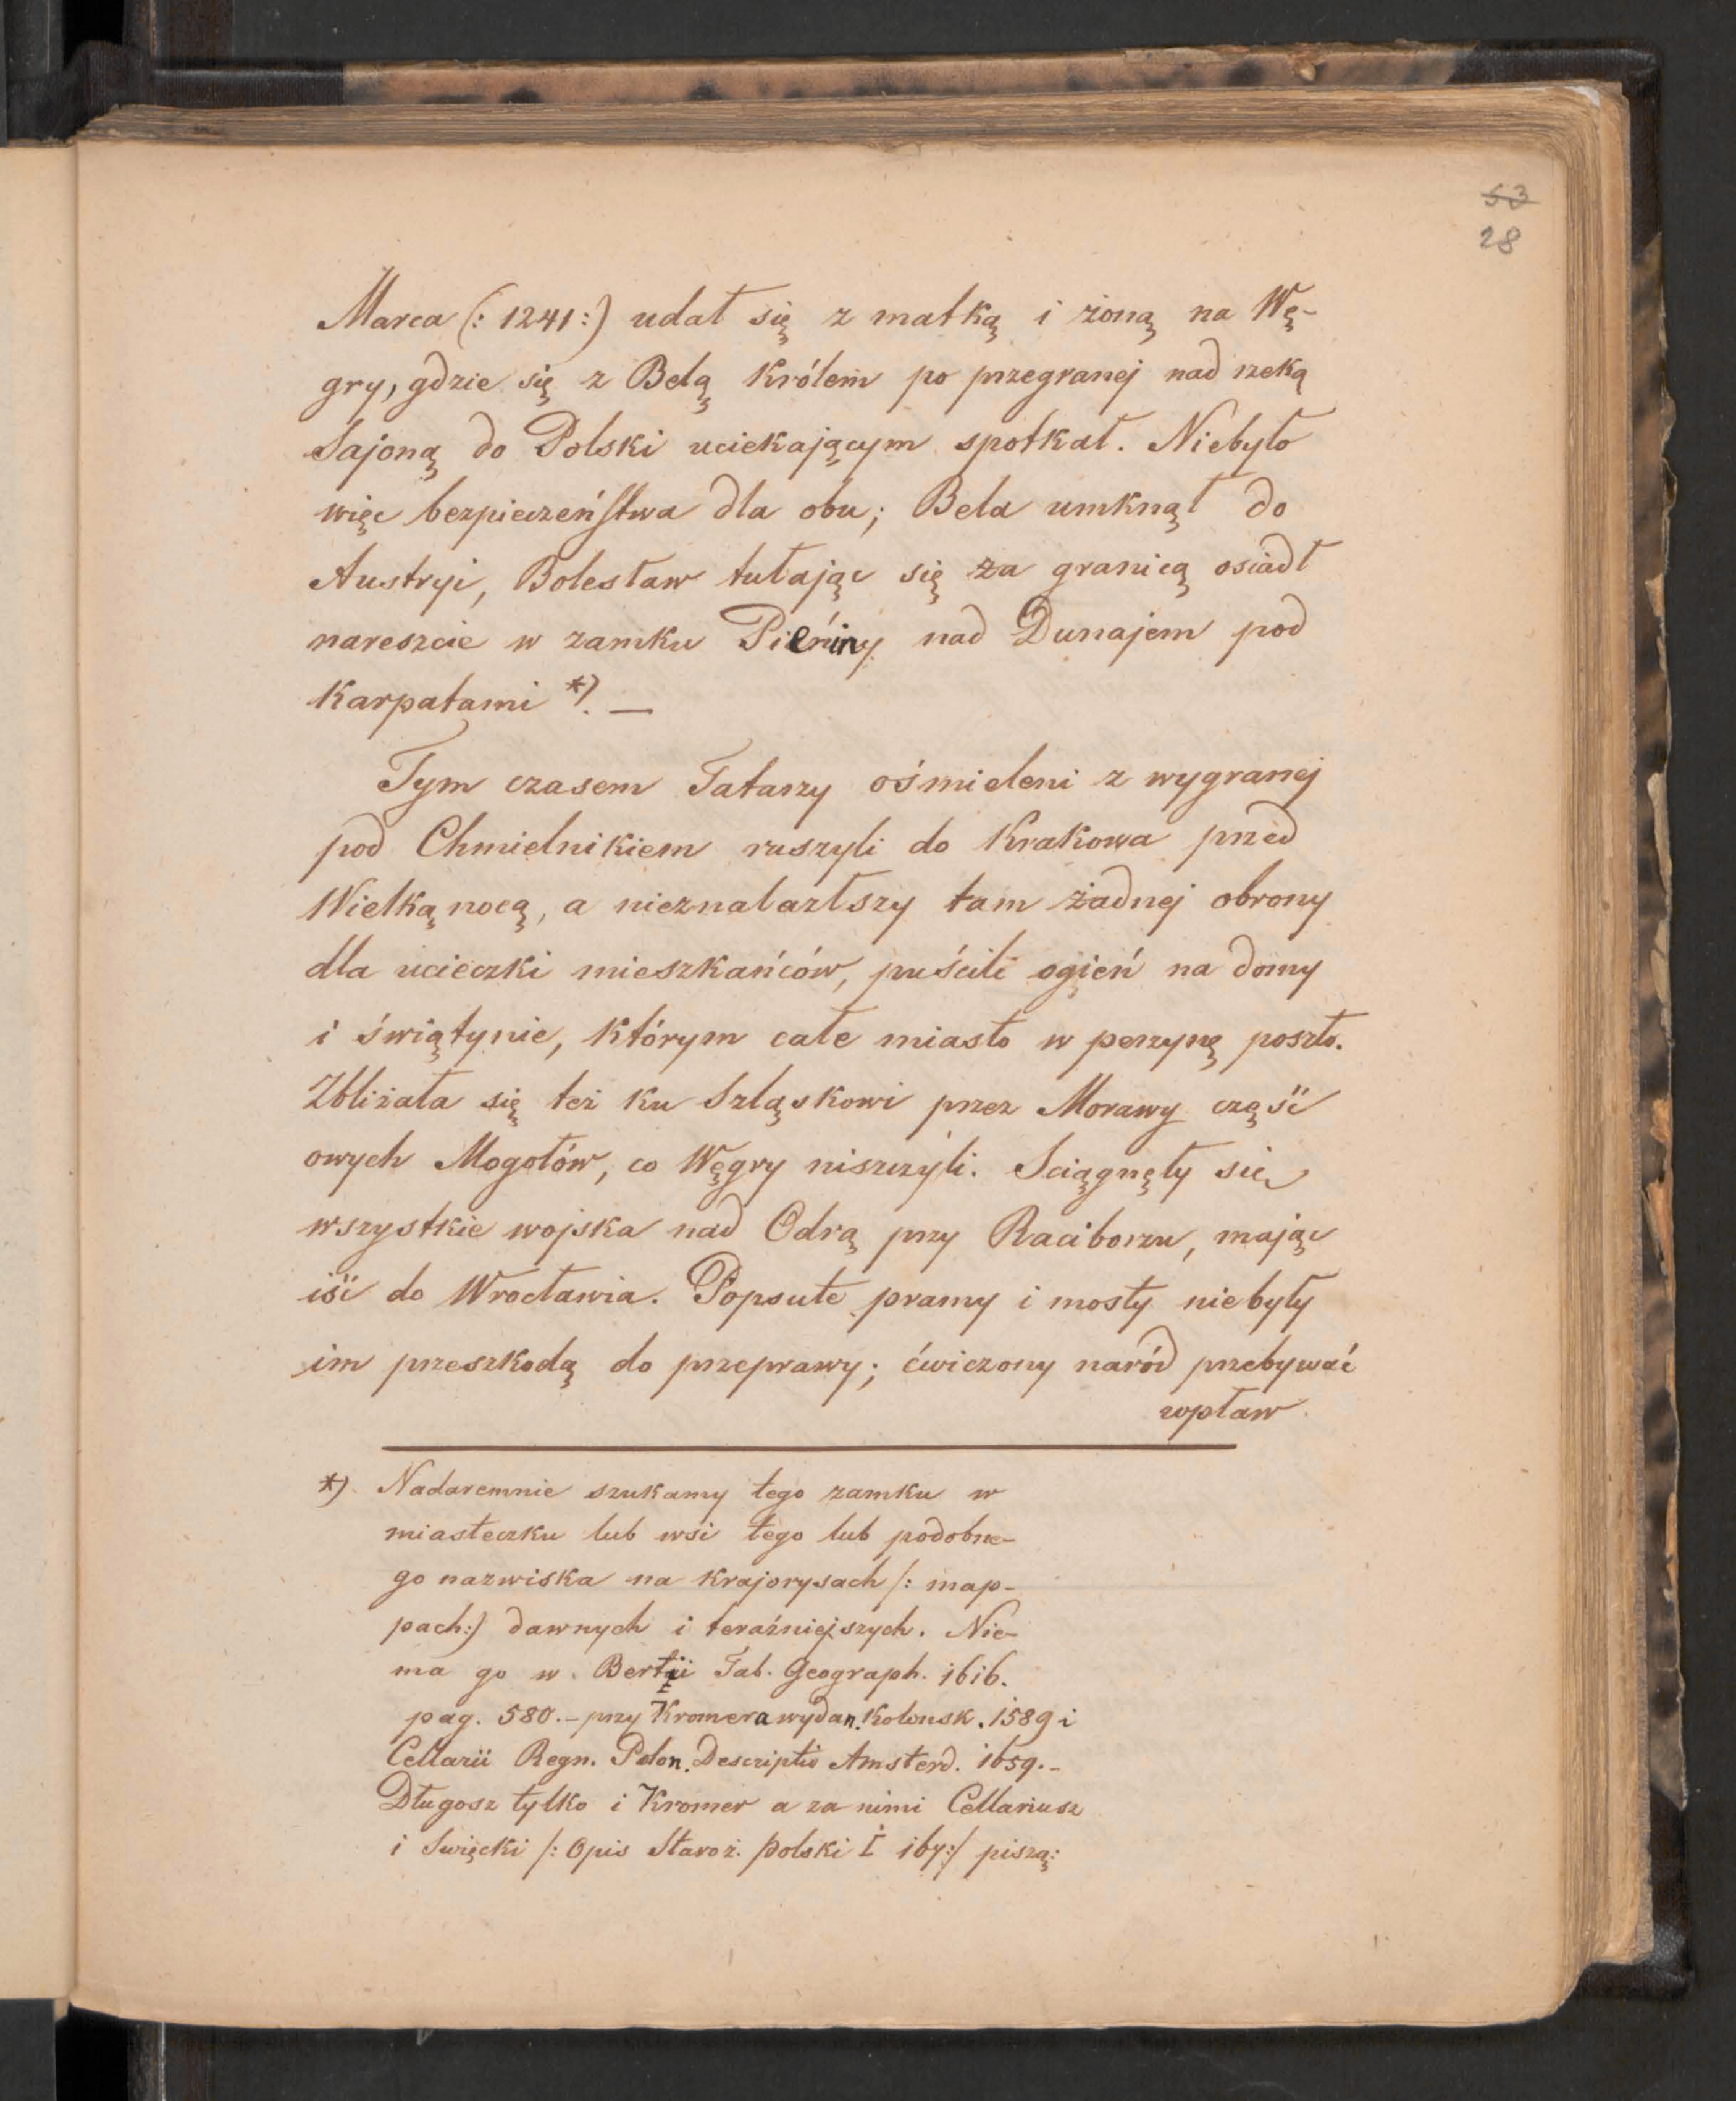 53
28
Marca (: 1241 :) udał się z matką i żoną na Wę-
gry, gdzie się z Belą Królem po przegranej nad rzeką
Sajoną do Polski uciekającym spotkał. Niebyło
więc bezpieczeństwa dla obu; Bela umknął do
Austryi, Bolesław tułając się za granicą osiadł
nareszcie w zamku Pieńiny nad Dunajem pod
Karpatami *). —
Tym czasem Tatarzy ośmieleni z wygranej
pod Chmielnikiem ruszyli do Krakowa przed
Wielką nocą, a nieznalazłszy tam żadnej obrony
dla ucieczki mieszkańców, puścili ogień na domy
i świątynie, którym całe miasto w perzynę poszło.
Zbliżała się też ku Szląskowi przez Morawy część
owych Mogołów, co Węgry niszczyli. Sciągnęły się
wszystkie wojska nad Odrą przy Raciborzu, mając
iść do Wrocławia. Popsute pramy i mosty niebyły
im przeszkodą do przeprawy; ćwiczony naród przebywać
wpław.
*) Nadaremnie szukamy tego zamku w
miasteczku lub wsi tego lub podobne-
go nazwiska na krajorysach /: map-
pach :) dawnych i teraźniejszych. Nie-
ma go w Bertii Tab. Geograph. 1616.
pag. 580. – przy Kromera wydan. Kolońsk. 1589 i
Cellarii Regn. Polon. Descriptio Amsterd. 1659. –
Długosz tylko i Kromer a za nimi Cellariusz
i Swięcki /: Opis Staroż. Polski I 167 :/ piszą: